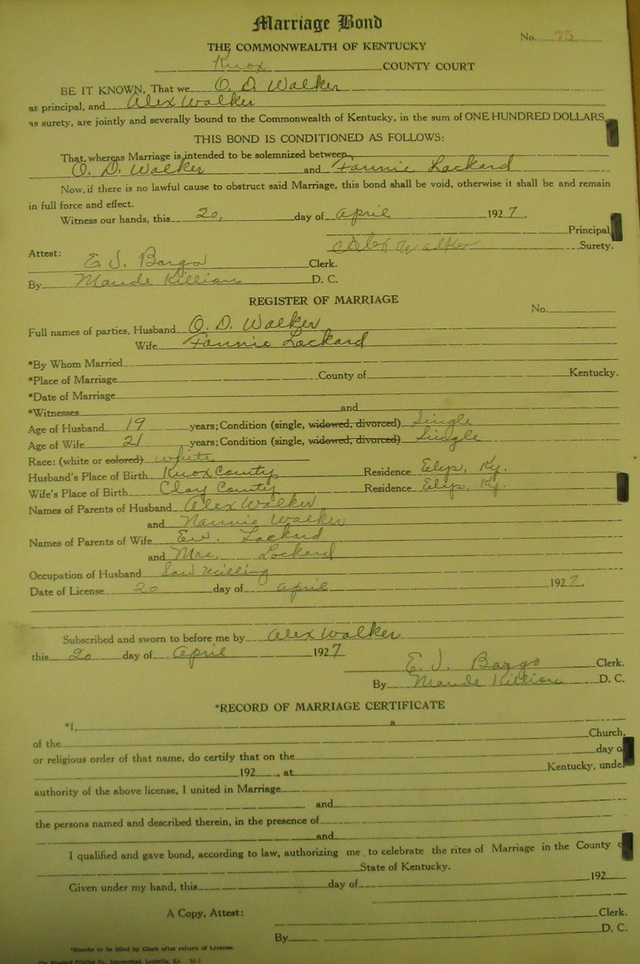 Marriage Bond
No. 75
THE COMMONWEALTH OF KENTUCKY
Knox COUNTY COURT
BE IT KNOWN, That we O. D. Walker
as principal, and Alex Walker
as surety, are jointly and severally bound to the Commonwealth of Kentucky, in the sum of ONE HUNDRED DOLLARS
THIS BOND IS CONDITIONED AS FOLLOWS:
That, whereas Marriage is intended to be solemnized between
O. D. Walker and Fannie Lockard
Now, if there is no lawful cause to obstruct said Marriage, this bond shall be void, otherwise it shall be and remain
in full force and effect.
Witness our hands, this 20, day of April 1927.
Principal
Alex Walker Surety.
Attest:
E. J. Bargo Clerk.
By Maude Killion D. C.
REGISTER OF MARRIAGE
No.
Full names of parties, Husband O. D. Walker
Wife Fannie Lockard
*By Whom Married
*Place of Marriage County of Kentucky.
*Date of Marriage
*Witnesses and
Age of Husband 19 years; Condition (single, widowed, divorced) Single
Age of Wife 21 years; Condition (single, widowed, divorced) Single
Race: (white or colored) White
Husband's Place of Birth Knox County Residence Elys, Ky.
Wife's Place of Birth Clay County Residence Elys, Ky.
Names of Parents of Husband Alex Walker
and Nannie Walker
Names of Parents of Wife Ew. Lockard
and Mrs. Lockard
Occupation of Husband Saw Milling
Date of License 20 day of April 1927.
Subscribed and sworn to before me by Alex Walker
this 20 day of April 1927
E. J. Bargo Clerk.
By Maude Killion D. C.
*RECORD OF MARRIAGE CERTIFICATE
*I, a
of the Church,
or religious order of that name, do certify that on the day o
192 , at Kentucky, unde
authority of the above license, I united in Marriage
and
the persons named and described therein, in the presence of
and
I qualified and gave bond, according to law, authorizing me to celebrate the rites of Marriage in the County o
State of Kentucky.
Given under my hand, this day of 192
A Copy, Attest: Clerk.
By D. C.
*Blanks to be filled by Clerk after return of License.
The Standard Printing Co., Incorporated, Louisville, Ky.